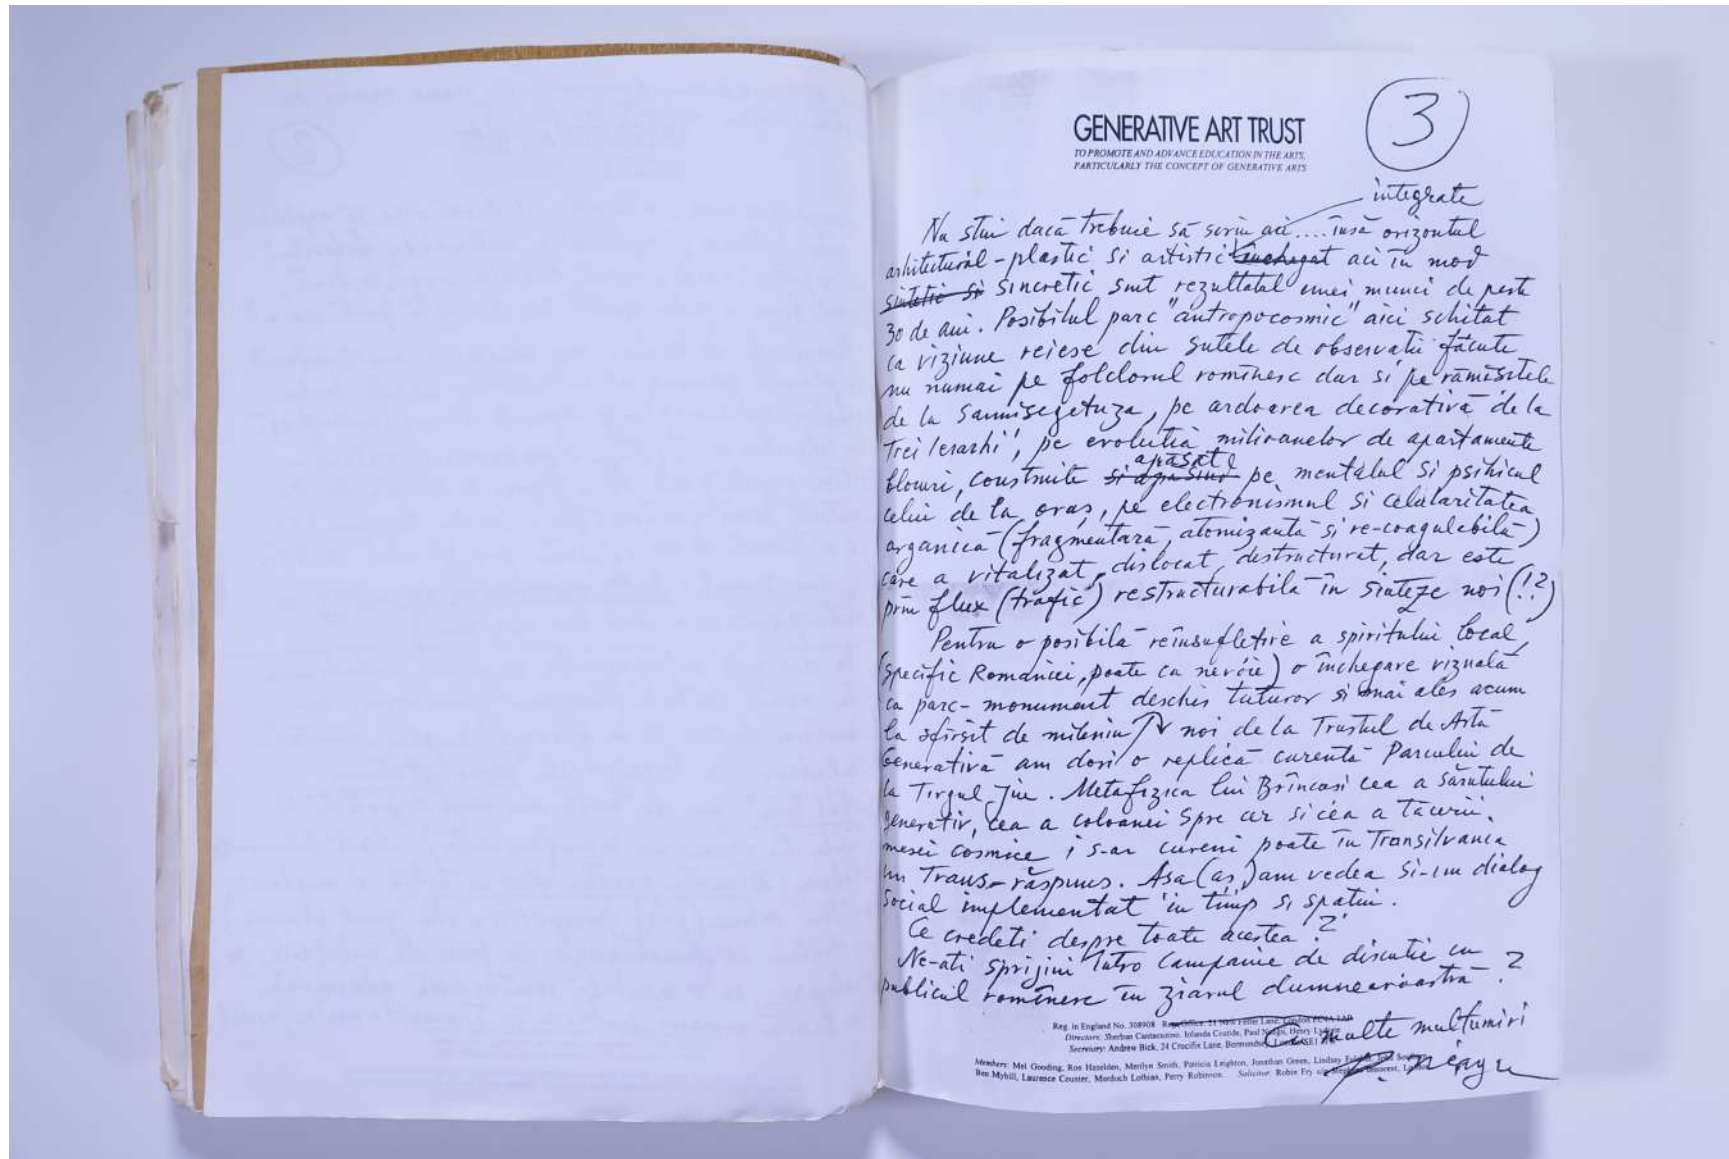 3
GENERATIVE ART TRUST
TO PROMOTE AND ADVANCE EDUCATION IN THE ARTS,
PARTICULARLY THE CONCEPT OF GENERATIVE ARTS
integrate
Nu stiu dacă trebuie să scriu aci .... însă orizontul
arhitectural - plastic si artistic inchegat aci în mod
sintetic si sincretic sint rezultatul unei munci de peste
30 de ani. Posibilul parc "antropocosmic" aici schitat
ca viziune reiese din sutele de observatii făcute
nu numai pe folclorul romînesc dar si pe rămăsitele
de la Sarmisegetuza, pe ardoarea decorativă de la
'Trei Ierarhi', pe evolutia milioanelor de apartamente
apăsate
blocuri, construite si apasind pe mentalul si psihicul
celui de la oraș, pe electronismul si celularitatea
organică (fragmentară, atomizantă si re-coagulabilă)
care a vitalizat, dislocat, destructurat, dar este
prin flux (trafic) restructurabilă în sinteze noi (!?)
Pentru o posibilă reînsufletire a spiritului local,
(specific Romaniei, poate cu nevoie) o închegare vizuală
ca parc- monument deschis tuturor si mai ales acum
la sfîrsit de mileniu noi de la Trustul de Artă
Generativă am dori o replică curentă Parcului de
la Tirgul Jiu. Metafizica lui Brîncusi cea a sărutului
generativ, cea a coloanei spre cer si cea a tăcerii
mesei cosmice i s-ar cuveni poate în Transilvania
un Trans-răspuns. Asa (as,) am vedea si-un dialog
social implementat în timp si spatiu.
Ce credeti despre toate acestea?
Ne-ati sprijini într-o campanie de discutie cu
publicul romînesc în ziarul dumneavoastră?
Reg. in England No. 308908 Reg. Office: 21 New Fetter Lane, London EC4A 1AP
Directors: Sherban Cantacuzino, Iolanda Costide, Paul Neagu, Henry Lydiate
Secretary: Andrew Bick, 24 Crucifix Lane, Bermondsey, London SE1
Cu multe multumiri
Members: Mel Gooding, Ron Haselden, Merilyn Smith, Patricia Leighton, Jonathan Green, Lindsay
Ben Myhill, Laurence Couster, Murdoch Lothian, Perry Robinson. Solicitor: Robin Fry
P. Neagu